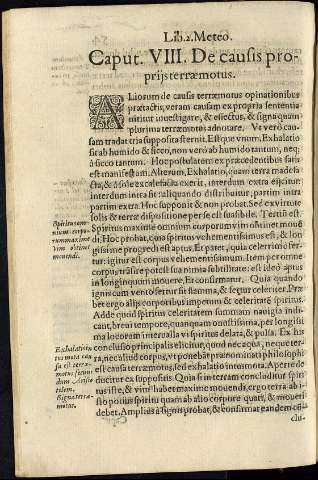 Lib.2. Meteo.
Caput. VIII. De causis pro-
prijs terræmotus.
ALiorum de causis terræmotus opinationibus
prætactis, veram causam ex propria sententia
nititur inuestigare, & effectus, & signa quam
plurima terræmotes adnotare. Vt verò cau-
sam tradat tria supposita sternit. Estque vnum. Exhalatio
fit ab humido & sicco, non verò ab humido tantum, neq;
à sicco tantum. Hoc postulatum ex præcedentibus satis
est manifestum. Alterum, Exhalatio, quam terra madefa-
cta, & à Sole excalefacta exerit, interdum extra eijcitur:
interdum intra sit: aliquando distribuitur, partim intra
partim extra. Hoc supponit & non probat. Sed ex virtute
solis & terræ dispositione per se est suasibile. Tertiũ est.
Spiritus maxime omnium corporum vim obtinet moue
di. Hoc probat, quia spiritus vehementissimus est, & lon
gissime progredi est aptus. Et patet, quia celerrime fer-
tur: igitur est corpus vehementissimum. Item per omne
corpus trãsire potest sua nimia subtilitate: est ideò aptus
in longinquum mouere. Et confirmatur. Quia quando
ignis cum vento fertur fit flamma, & fertur celeriter. Præ
bet ergo alijs corporibus impetum & celeritatẽ spiritus.
Adde quod spiritus celeritatem summam nauigia indi-
cant, breui tempore, quanquam onustissima, per longissi
ma locorum interualla vi spiritus delata, & pulsa. Ex his
conclusio principalis elicitur, quod nec aqua, neque ter-
ra, nec aliud corpus, vt ponebãt prænominati philosophi
est causa terræmotus, sed exhalatio intus mota. Aperte de
ducitur ex suppositis. Quia si in terram concluditur spiri-
tus iste, & vim habet maxime mouendi, ergo terra ab i-
sto potius spiritu quam ab alio corpore quati, & moueri
debet. Amplius à signis probat, & confirmat eandem cõ-
clu-
Spiritus om-
nium corpo-
rum maxime
vim obtinet
mouendi.
Exhalatio in
tus mota cau
sa est terræ-
motus secun
dum Aristo
telem.
Signa terræ-
motus.